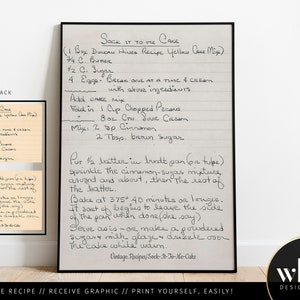 Sock it to me Cake
(1 Box Duncan Hines Recipe Yellow Cake Mix)
3/4 C. Butter
1/2 C. Sugar
4 Eggs - Break one at a time & cream
with above ingredients
Add cake mix
Fold in 1 Cup Chopped Pecans
8 oz Ctn. Sour Cream
Mix: 2 tsp Cinnamon
2 Tbsp. brown sugar
Put 1/2 batter in bundt pan (or tube)
sprinkle the cinnamon-sugar mixture
around and about, then the rest of
the batter.
Bake at 375° 40 minutes or longer.
It sort of begins to leave the side
of the pan when done (dee say)
Serve as is - or make a powdered
sugar & milk glaze & drizzle over
the cake while warm.
Vintage.Recipes/Sock-It-To-Me-Cake
ACK
E RECIPE // RECEIVE GRAPHIC // PRINT YOURSELF, EASILY!
DESIG